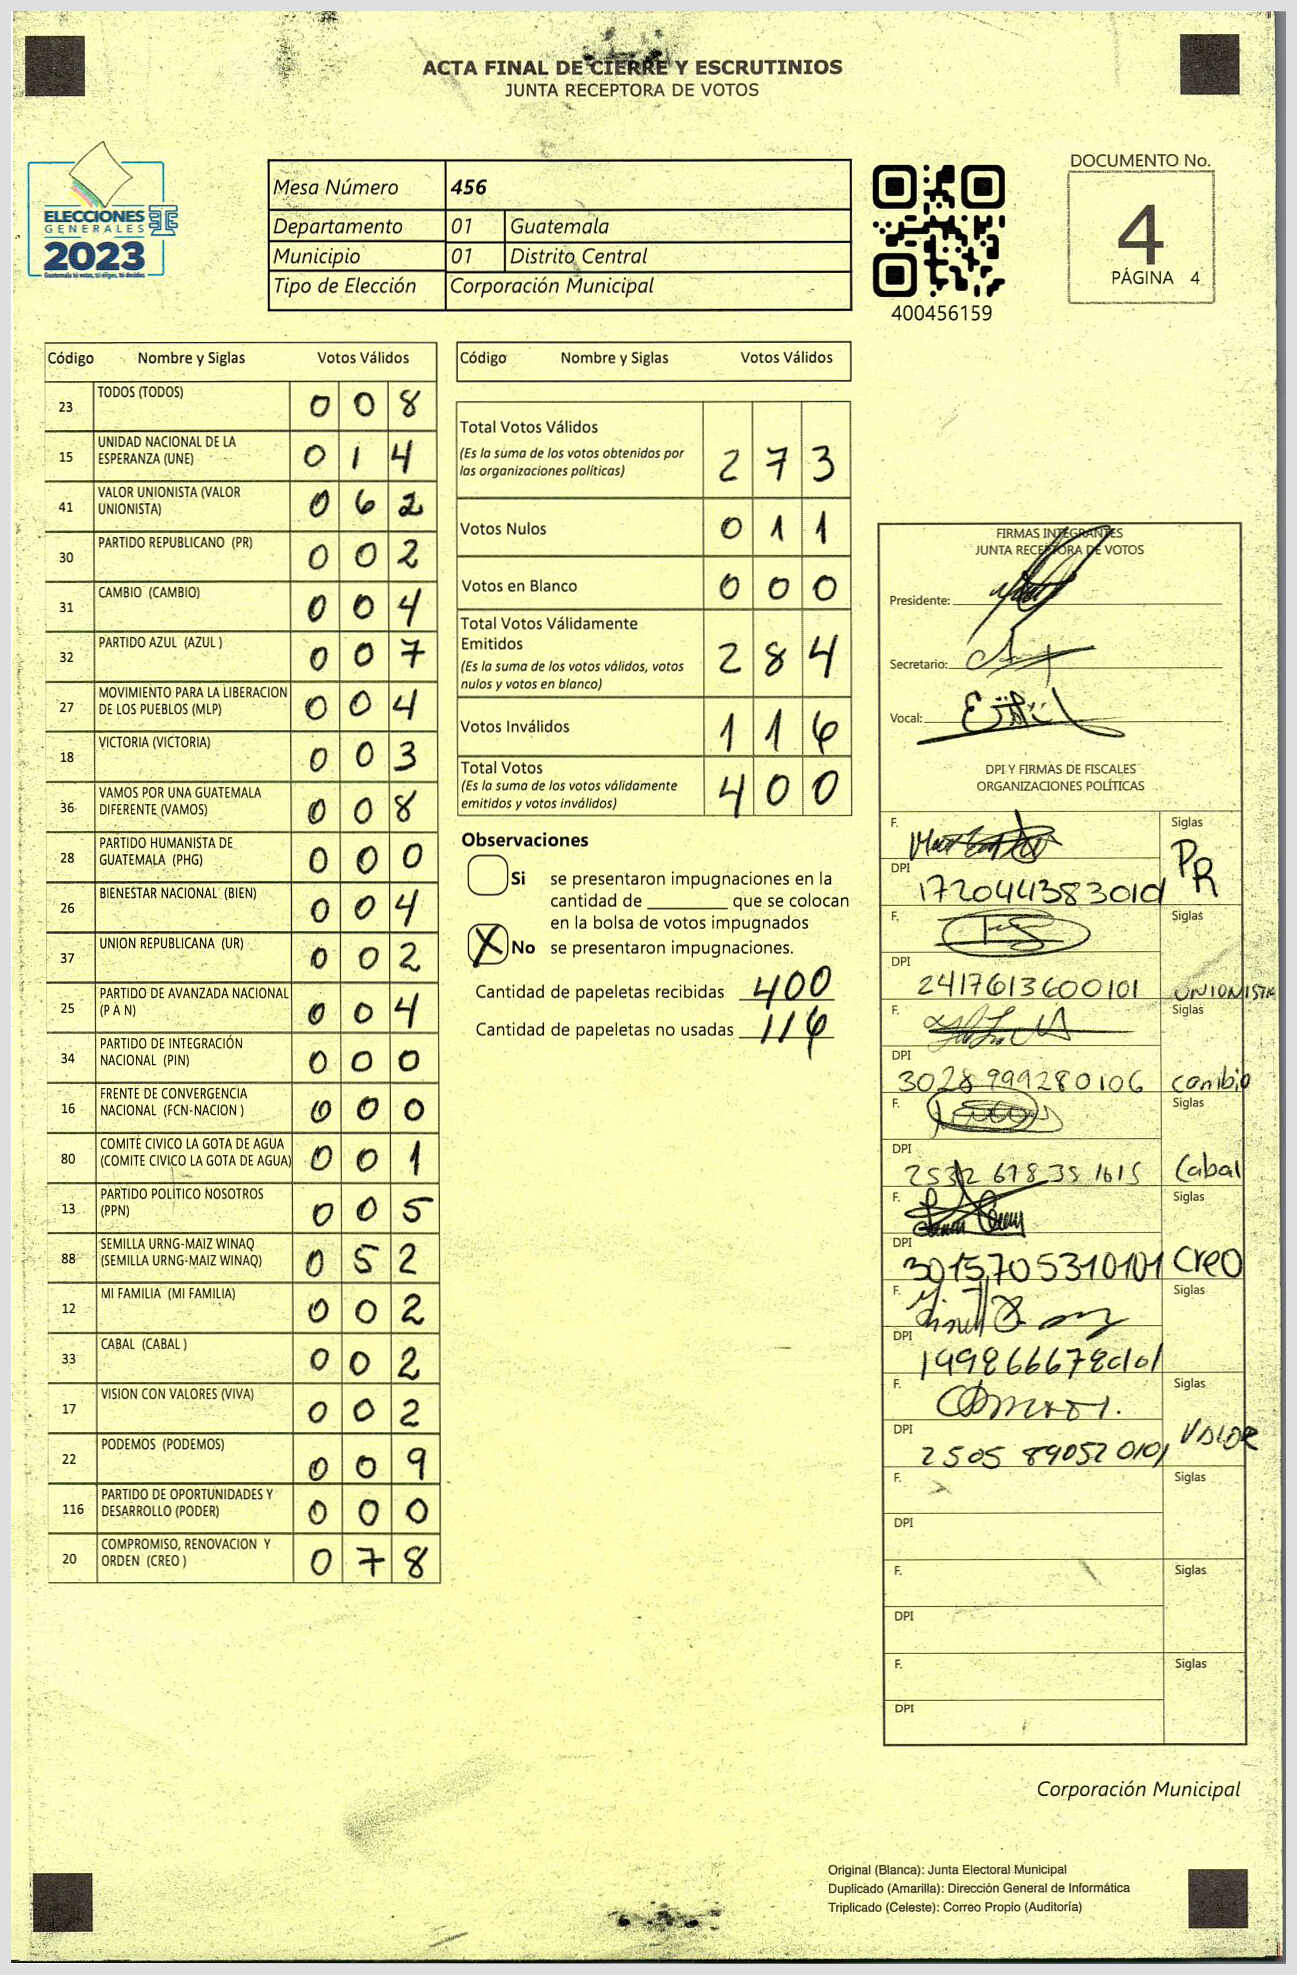 ACTA FINAL DE CIERRE Y ESCRUTINIOS
JUNTA RECEPTORA DE VOTOS
ELECCIONES
GENERALES
2023
Guatemala tú votas, tú eliges, tú decides
Mesa Número 456
Departamento 01 Guatemala
Municipio 01 Distrito Central
Tipo de Elección Corporación Municipal
400456159
DOCUMENTO No.
4
PÁGINA 4
Código Nombre y Siglas Votos Válidos
23 TODOS (TODOS) 0 0 8
15 UNIDAD NACIONAL DE LA ESPERANZA (UNE) 0 1 4
41 VALOR UNIONISTA (VALOR UNIONISTA) 0 6 2
30 PARTIDO REPUBLICANO (PR) 0 0 2
31 CAMBIO (CAMBIO) 0 0 4
32 PARTIDO AZUL (AZUL ) 0 0 7
27 MOVIMIENTO PARA LA LIBERACION DE LOS PUEBLOS (MLP) 0 0 4
18 VICTORIA (VICTORIA) 0 0 3
36 VAMOS POR UNA GUATEMALA DIFERENTE (VAMOS) 0 0 8
28 PARTIDO HUMANISTA DE GUATEMALA (PHG) 0 0 0
26 BIENESTAR NACIONAL (BIEN) 0 0 4
37 UNION REPUBLICANA (UR) 0 0 2
25 PARTIDO DE AVANZADA NACIONAL (P A N) 0 0 4
34 PARTIDO DE INTEGRACIÓN NACIONAL (PIN) 0 0 0
16 FRENTE DE CONVERGENCIA NACIONAL (FCN-NACION ) 0 0 0
80 COMITE CIVICO LA GOTA DE AGUA (COMITE CIVICO LA GOTA DE AGUA) 0 0 1
13 PARTIDO POLITICO NOSOTROS (PPN) 0 0 5
88 SEMILLA URNG-MAIZ WINAQ (SEMILLA URNG-MAIZ WINAQ) 0 5 2
12 MI FAMILIA (MI FAMILIA) 0 0 2
33 CABAL (CABAL ) 0 0 2
17 VISION CON VALORES (VIVA) 0 0 2
22 PODEMOS (PODEMOS) 0 0 9
116 PARTIDO DE OPORTUNIDADES Y DESARROLLO (PODER) 0 0 0
20 COMPROMISO, RENOVACION Y ORDEN (CREO ) 0 7 8
Código Nombre y Siglas Votos Válidos
Total Votos Válidos 2 7 3
(Es la suma de los votos obtenidos por
las organizaciones políticas)
Votos Nulos 0 1 1
Votos en Blanco 0 0 0
Total Votos Válidamente
Emitidos 2 8 4
(Es la suma de los votos válidos, votos
nulos y votos en blanco)
Votos Inválidos 1 1 6
Total Votos 4 0 0
(Es la suma de los votos válidamente
emitidos y votos inválidos)
Observaciones
Si se presentaron impugnaciones en la
cantidad de ________ que se colocan
en la bolsa de votos impugnados
X No se presentaron impugnaciones.
Cantidad de papeletas recibidas 400
Cantidad de papeletas no usadas 116
FIRMAS INTEGRANTES
JUNTA RECEPTORA DE VOTOS
Presidente:
Secretario:
Vocal:
DPI Y FIRMAS DE FISCALES
ORGANIZACIONES POLÍTICAS
F. Siglas PR
DPI
F. Siglas UNIONISTA
DPI 2417613600101
F. Siglas cambio
DPI 3028999280106
F. Siglas Cabal
DPI 2532 67835 1615
F. Siglas CREO
DPI 3015705310101
F. Siglas
DPI
F. Siglas VALOR
DPI 2505 89052 0101
F. Siglas
DPI
F. Siglas
DPI
F. Siglas
DPI
Corporación Municipal
Original (Blanca): Junta Electoral Municipal
Duplicado (Amarilla): Dirección General de Informática
Triplicado (Celeste): Correo Propio (Auditoría)